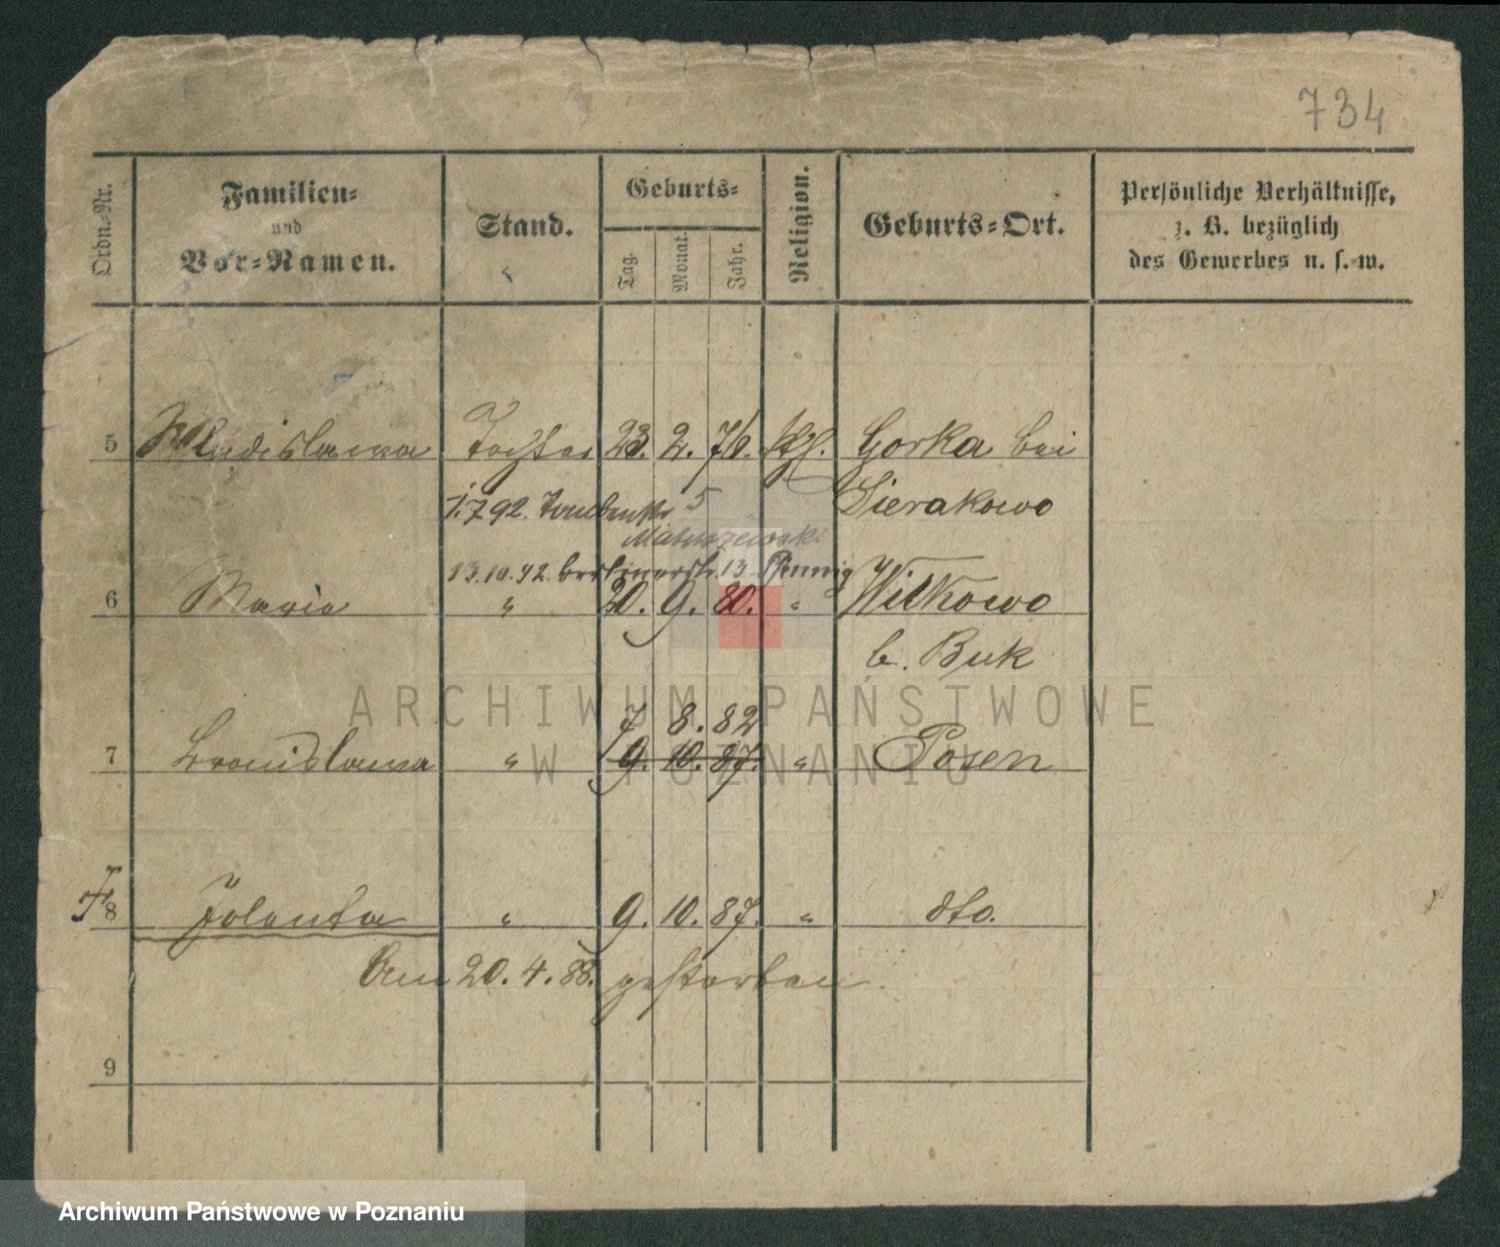 734
Ordn.-Nr.
Familien-
und
Vor-Namen.
Stand.
Geburts-
Tag.
Monat.
Jahr.
Religion.
Geburts-Ort.
Persönliche Verhältnisse,
z. B. bezüglich
des Gewerbes u. s. w.
5 Wladislawa Tochter 23. 2. 76. kth. Gorka bei
1.7 92. Taubenstr 5 Sierakowo
Matuszewski
13.10.92. Berlinerstr. 13 Pfennig
6 Maria " 20. 9. 80. " Witkowo
b. Buk
7. 8. 82
7 Bronislawa " 9. 10. 87. " Posen
† 8 Jolanta " 9. 10. 87. " dto.
Am 20. 4. 88. gestorben.
9
ARCHIWUM PAŃSTWOWE
W POZNANIU
Archiwum Państwowe w Poznaniu